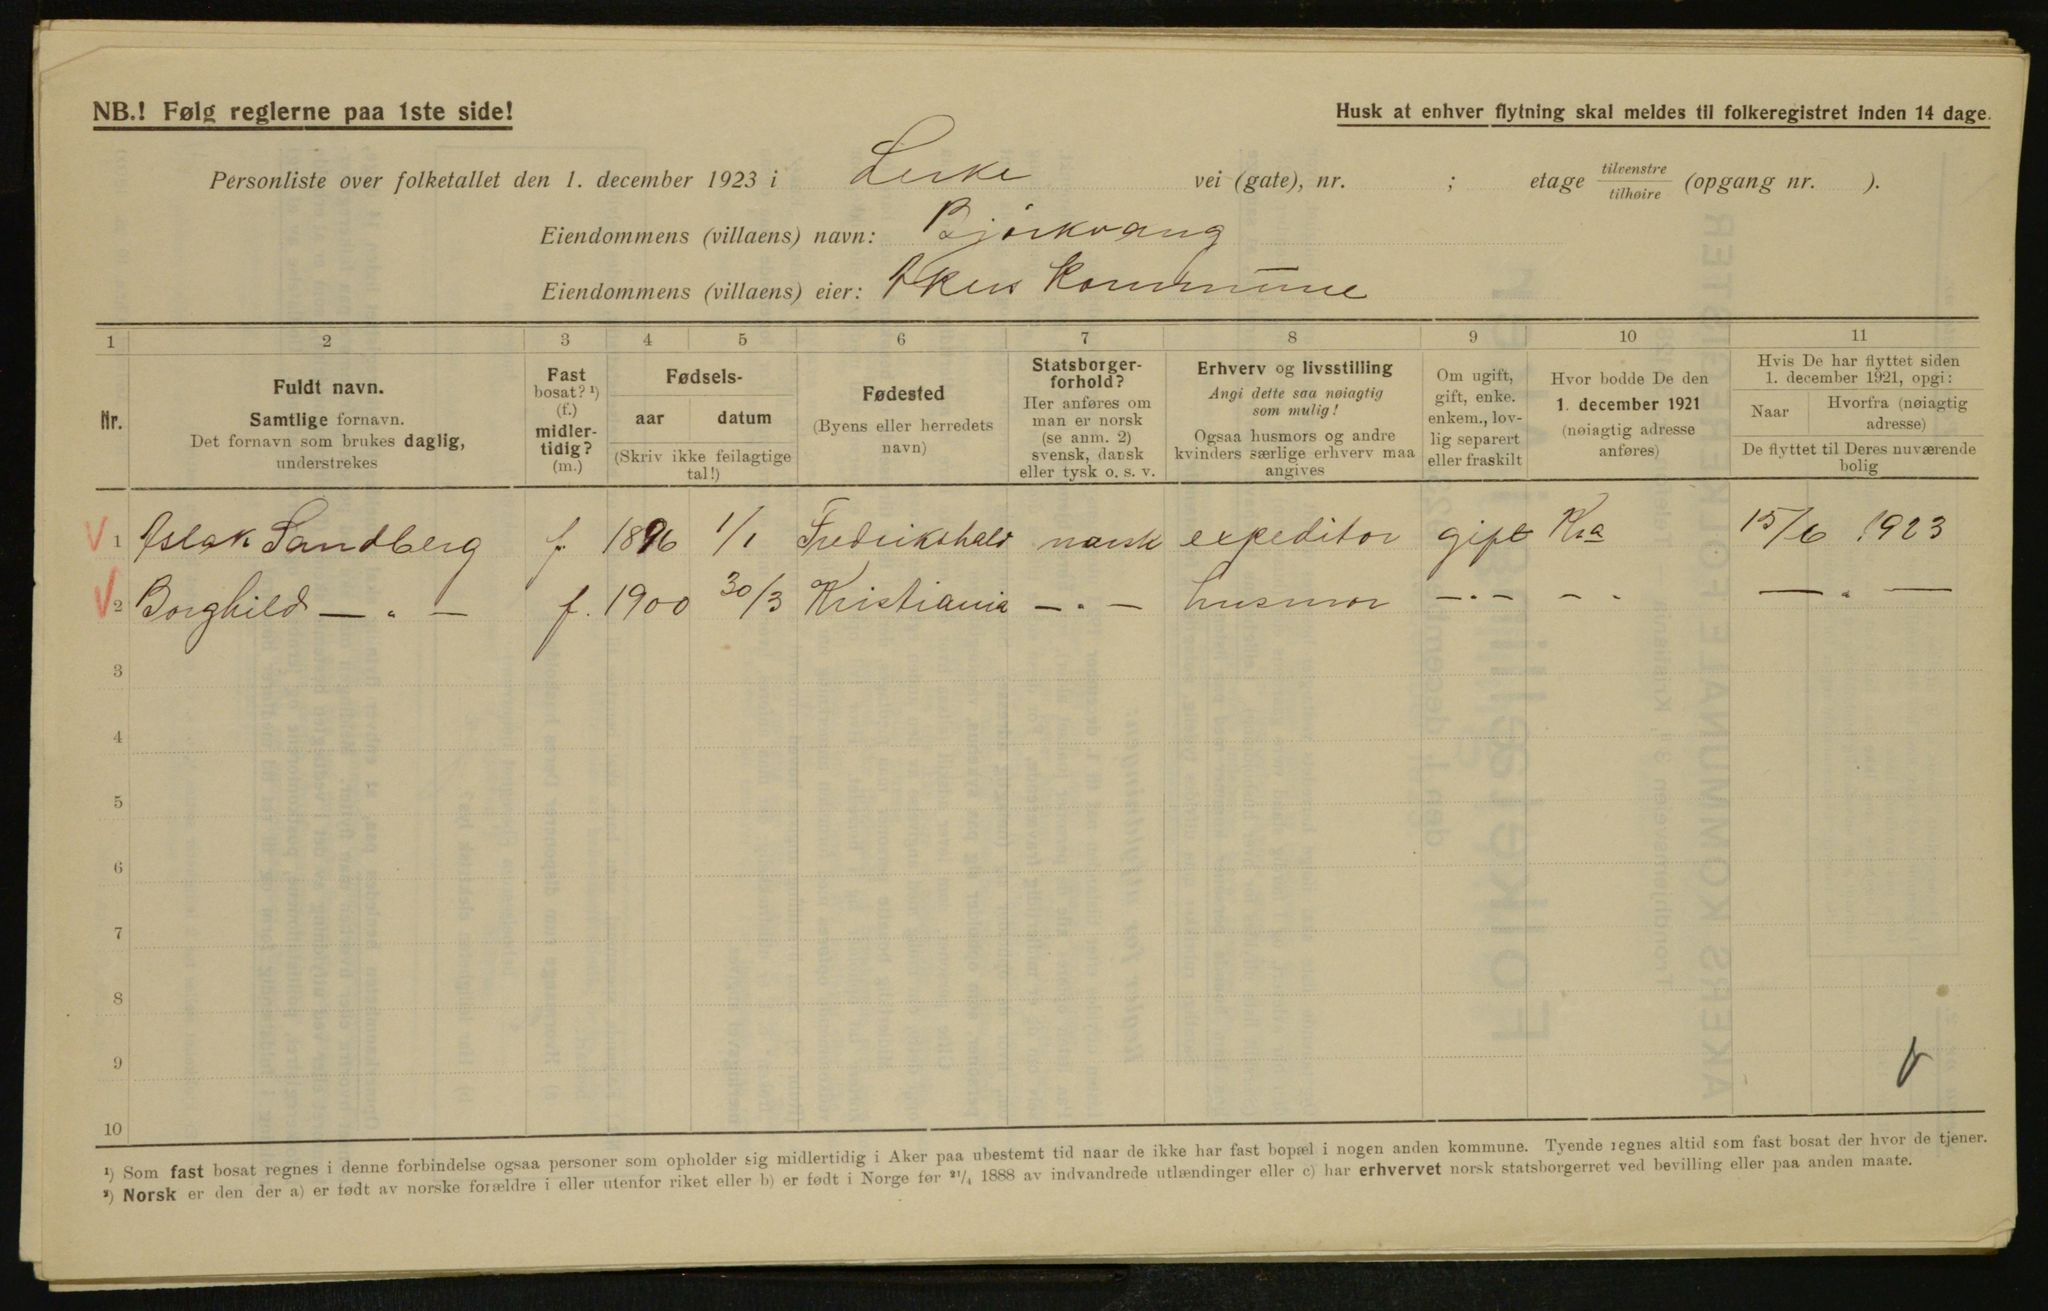 NB.! Følg reglerne paa 1ste side!
Husk at enhver flytning skal meldes til folkeregistret inden 14 dage.
Personliste over folketallet den 1. december 1923 i Lerke vei (gate), nr. ; etage tilvenstre/tilhøire (opgang nr. ).
Eiendommens (villaens) navn: Bjørkvang
Eiendommens (villaens) eier: Akers Kommune
1 2 3 4 5 6 7 8 9 10 11
Nr.
Fuldt navn.
Samtlige fornavn.
Det fornavn som brukes daglig,
understrekes
Fast
bosat? ¹)
(f.)
midler-
tidig?
(m.)
Fødsels-
aar datum
(Skriv ikke feilagtige
tal!)
Fødested
(Byens eller herredets
navn)
Statsborger-
forhold?
Her anføres om
man er norsk
(se anm. 2)
svensk, dansk
eller tysk o. s. v.
Erhverv og livsstilling
Angi dette saa nøiagtig
som mulig!
Ogsaa husmors og andre
kvinders særlige erhverv maa
angives
Om ugift,
gift, enke.
enkem., lov-
lig separert
eller fraskilt
Hvor bodde De den
1. december 1921
(nøiagtig adresse
anføres)
Hvis De har flyttet siden
1. december 1921, opgi:
Naar
Hvorfra (nøiagtig
adresse)
De flyttet til Deres nuværende
bolig
1 Aslak Sandberg f. 1896 1/1 Fredrikshald norsk expeditor gift Kra 15/6 1923
2 Borghild — " — f. 1900 30/3 Kristiania — " — husmor — " — — " — " —
3
4
5
6
7
8
9
10
¹) Som fast bosat regnes i denne forbindelse ogsaa personer som opholder sig midlertidig i Aker paa ubestemt tid naar de ikke har fast bopæl i nogen anden kommune. Tyende regnes altid som fast bosat der hvor de tjener.
²) Norsk er den der a) er født av norske forældre i eller utenfor riket eller b) er født i Norge før 21/4 1888 av indvandrede utlændinger eller c) har erhvervet norsk statsborgerret ved bevilling eller paa anden maate.